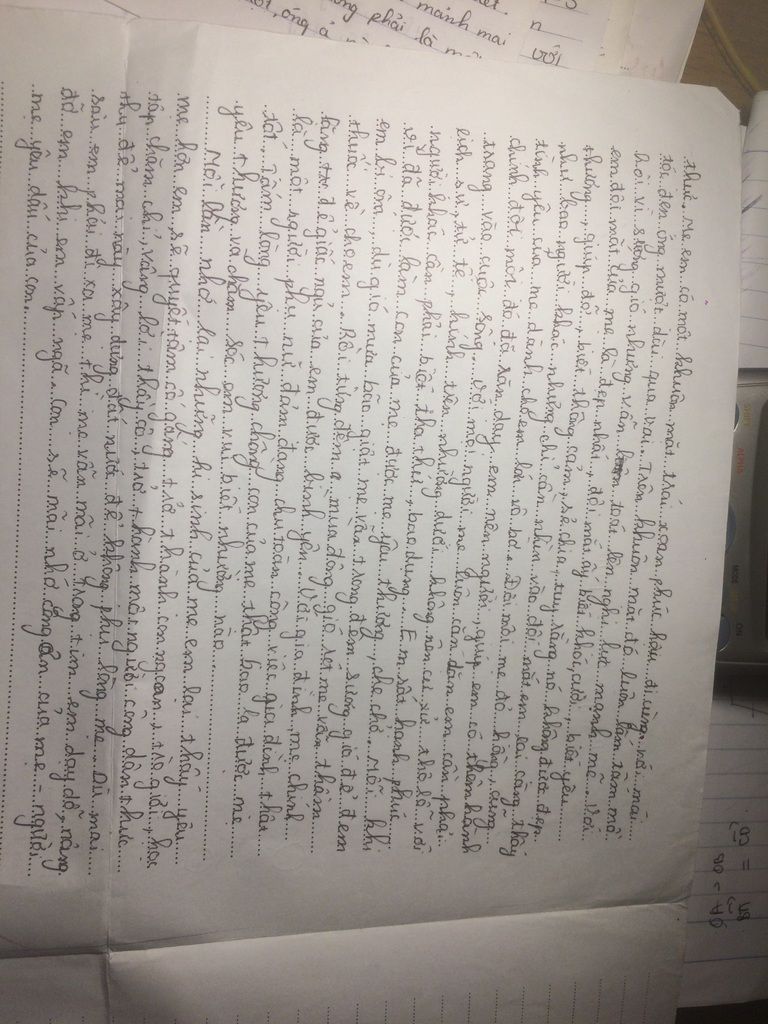 thước. Mẹ em có một khuôn mặt trái xoan phúc hậu đi cùng với mái
tóc đen óng mượt dài qua vai. Trên khuôn mặt đó luôn lấm tấm mồ
hôi vì sương gió nhưng vẫn toát lên nghị lực mạnh mẽ. Với
em đôi mắt của mẹ là đẹp nhất, đôi mắt ấy biết khóc, cười, biết yêu
thương, giúp đỡ, biết thông cảm, sẻ chia, tuy rằng nó không được đẹp
như bao người khác nhưng chỉ cần nhìn vào đôi mắt em lại càng thấy
tình yêu của mẹ dành cho em lớn vô bờ. Đôi môi mẹ đỏ hồng, cũng
chính đôi môi đó đã răn dạy em nên người, giúp em có thêm hành
trang vào cuộc sống. Với mọi người mẹ luôn căn dặn em cần phải
lịch sự, tử tế, kính trên nhường dưới không nên cư xử thô lỗ với
người khác cần phải biết tha thứ, bao dung. Em rất hạnh phúc
vì đã được làm con của mẹ được mẹ yêu thương, che chở. Mỗi khi
em bị ốm, dù gió mưa bão giật mẹ vẫn trong đêm sương gió để đem
thuốc về cho em. Rồi từng đêm mùa đông gió rét mẹ vẫn thầm
lặng để giấc ngủ của em được bình yên. Với gia đình, mẹ chính
là một người phụ nữ đảm đang chu toàn công việc gia đình thật
tốt. Tấm lòng yêu thương chồng con của mẹ thật bao la được mẹ
yêu thương và chăm sóc em vui biết nhường nào
Mỗi lần nhớ lại những hi sinh của mẹ em lại thấy yêu
mẹ hơn em sẽ quyết tâm cố gắng trở thành con ngoan, trò giỏi, học
tập chăm chỉ, vâng lời thầy cô, trở thành một người công dân thực
thụ để mai này xây dựng đất nước để không phụ lòng mẹ. Dù mai
sau em phải đi xa mẹ thì mẹ vẫn mãi ở trong tim em dạy dỗ, nâng
đỡ em khi em vấp ngã. Con sẽ mãi nhớ công ơn của mẹ - người
mẹ yêu dấu của con.
phải là
mảnh mai
với
ON
MODE
SHIFT
ALPHA
OB
OA